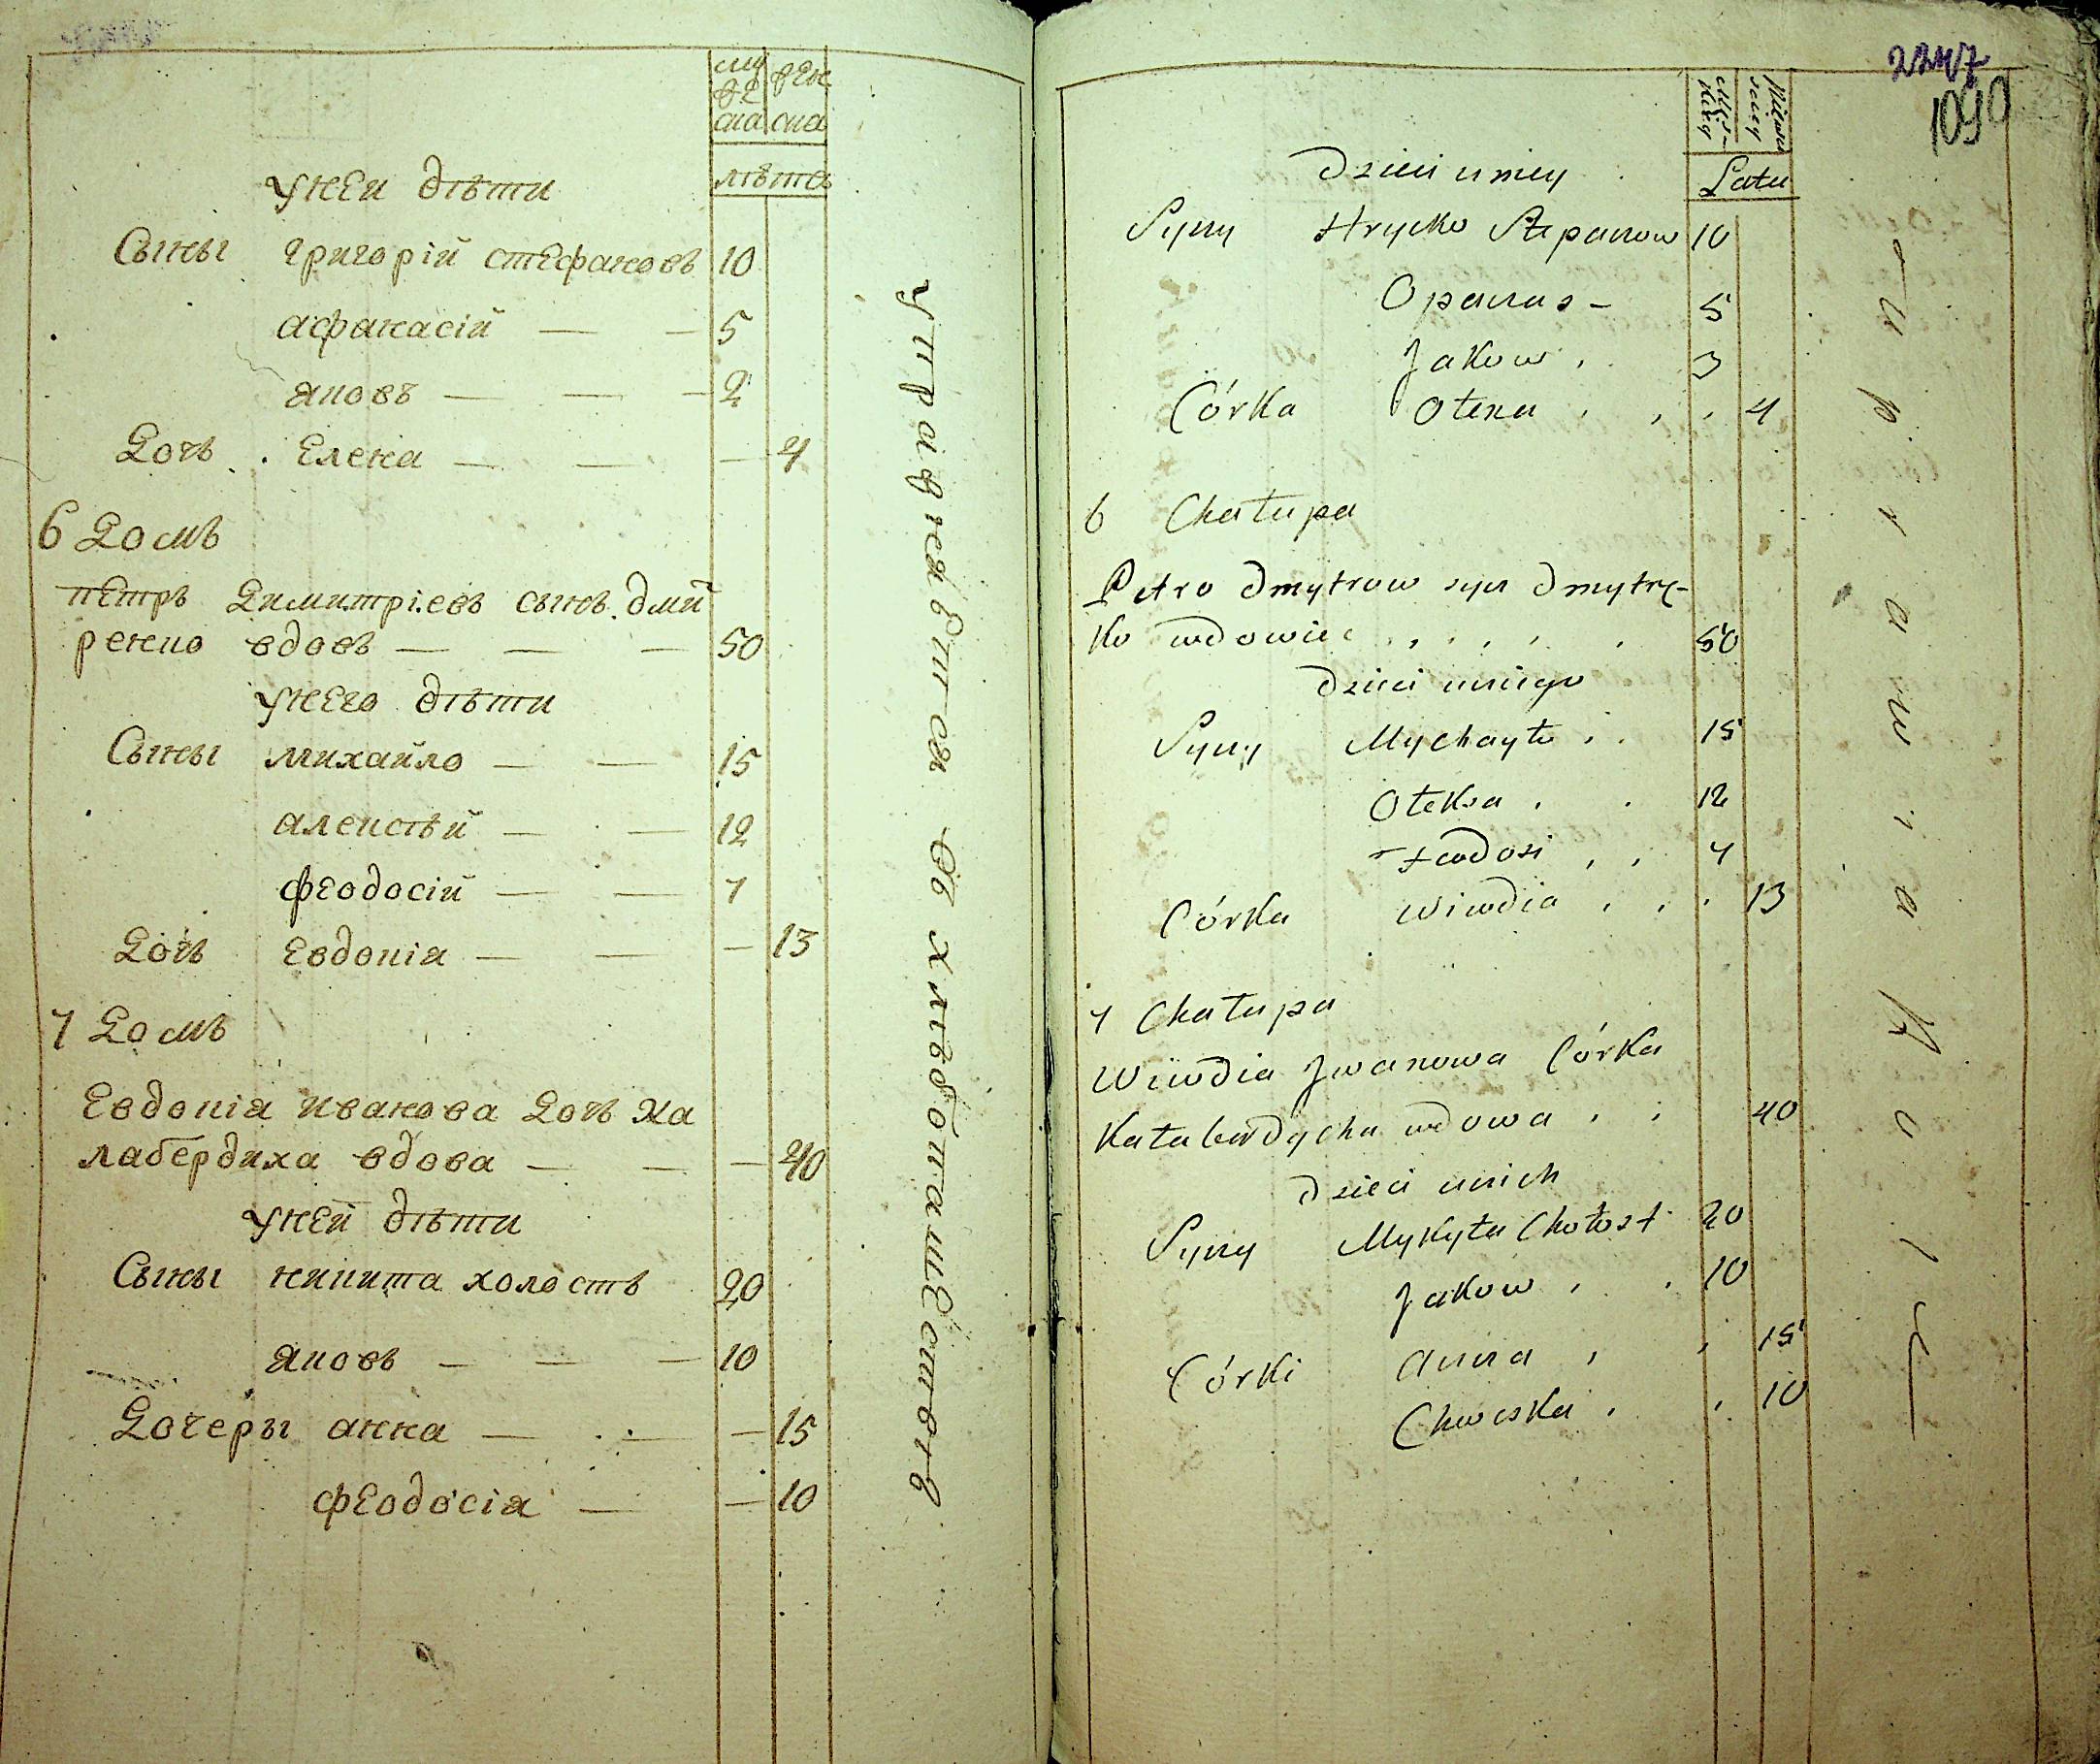 муже
ска
женска
лѣта
У ней дѣти
Сыны григорій стефановъ 10
афанасій — — 5
яковъ — — — 2
Дочь Елена — — — 4
6 Домъ
петръ Димитріевъ сынъ дми
ренко вдовъ — — — 50
У него дѣти
Сыны михайло — — 15
алексѣй — — 12
феодосій — — 7
Дочь Евдокія — — — 13
7 Домъ
Евдокія иванова Дочь Ка
лабердиха вдова — — — 40
У ней дѣти
Сыны никита холостъ 20
яковъ — — — 10
Дочеры анна — — — 15
феодосія — — 10
упражняется въ хлѣбопашествѣ
2247
1090
Męs-
kiey
Żeńskiey
Lata
Dzieci u niey
Syny Hrycko Stepanow 10
Opanas – 5
Jakow 3
Córka Ołena 4
6 Chałupa
Petro Dmytrow syn Dmytrę-
ko wdowiec 50
Dzieci u niego
Syny Mychayło 15
Ołeksa 12
Fedosi 7
Córka Wiwdia 13
7 Chałupa
Wiwdia Jwanowa Córka
Kałaberdycha wdowa 40
Dzieci u nich
Syny Mykyta Chołost 20
Jakow 10
Córki Anna 15
Chweska 10
uprawia Rolę